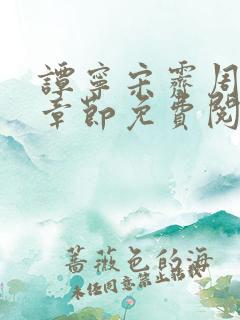 譚寧宋霽周
章節免費閱
薔薇色的海
未任同意禁止轉載